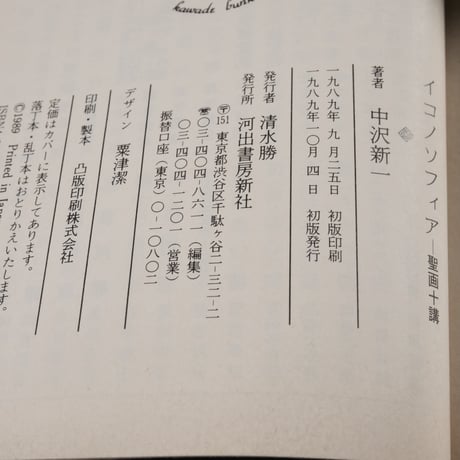 kawade bunk
イコノソフィア―聖画十講
著者 中沢新一
一九八九年 九 月二五日 初版印刷
一九八九年一〇月 四 日 初版発行
発行者 清水勝
発行所 河出書房新社
〒151 東京都渋谷区千駄ヶ谷二-三二-二
☎〇三-四〇四-八六一一(編集)
〇三-四〇四-一二〇一(営業)
振替口座(東京)〇-一〇八〇二
デザイン 粟津潔
印刷・製本 凸版印刷株式会社
定価はカバーに表示してあります。
落丁本・乱丁本はおとりかえいたします。
©1989 Printed in Japa
ISBN4